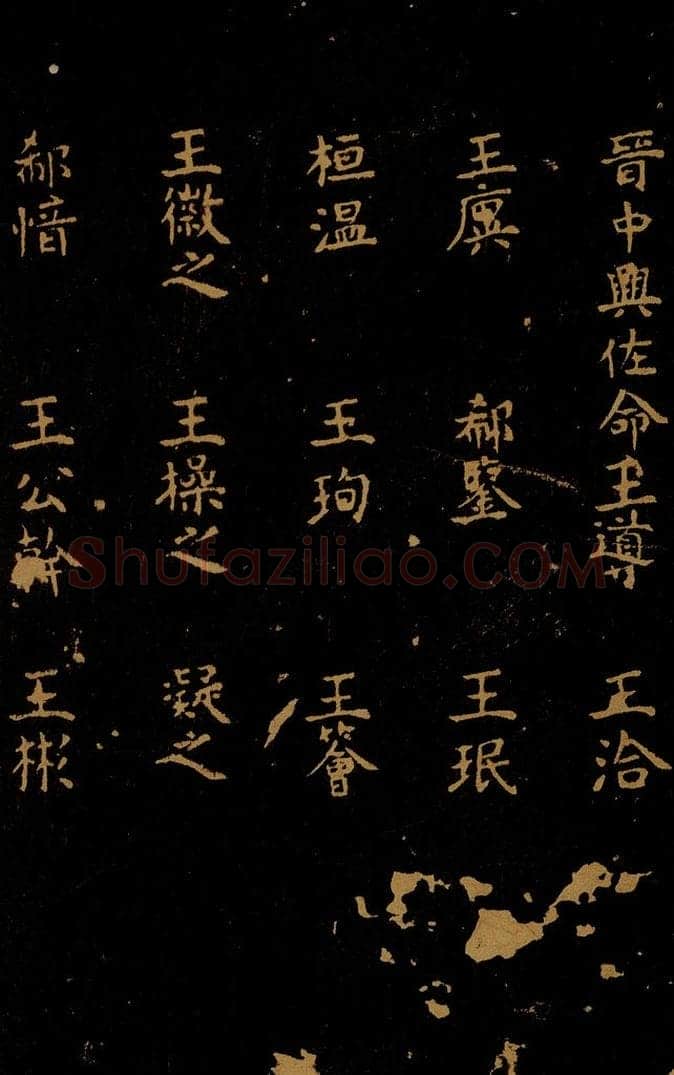 晉中興佐命王導 王洽
王廙 郗鑒 王珉
桓温 王珣 王薈
王徽之 王操之 凝之
郗愔 王公幹 王彬
Shufaziliao.COM